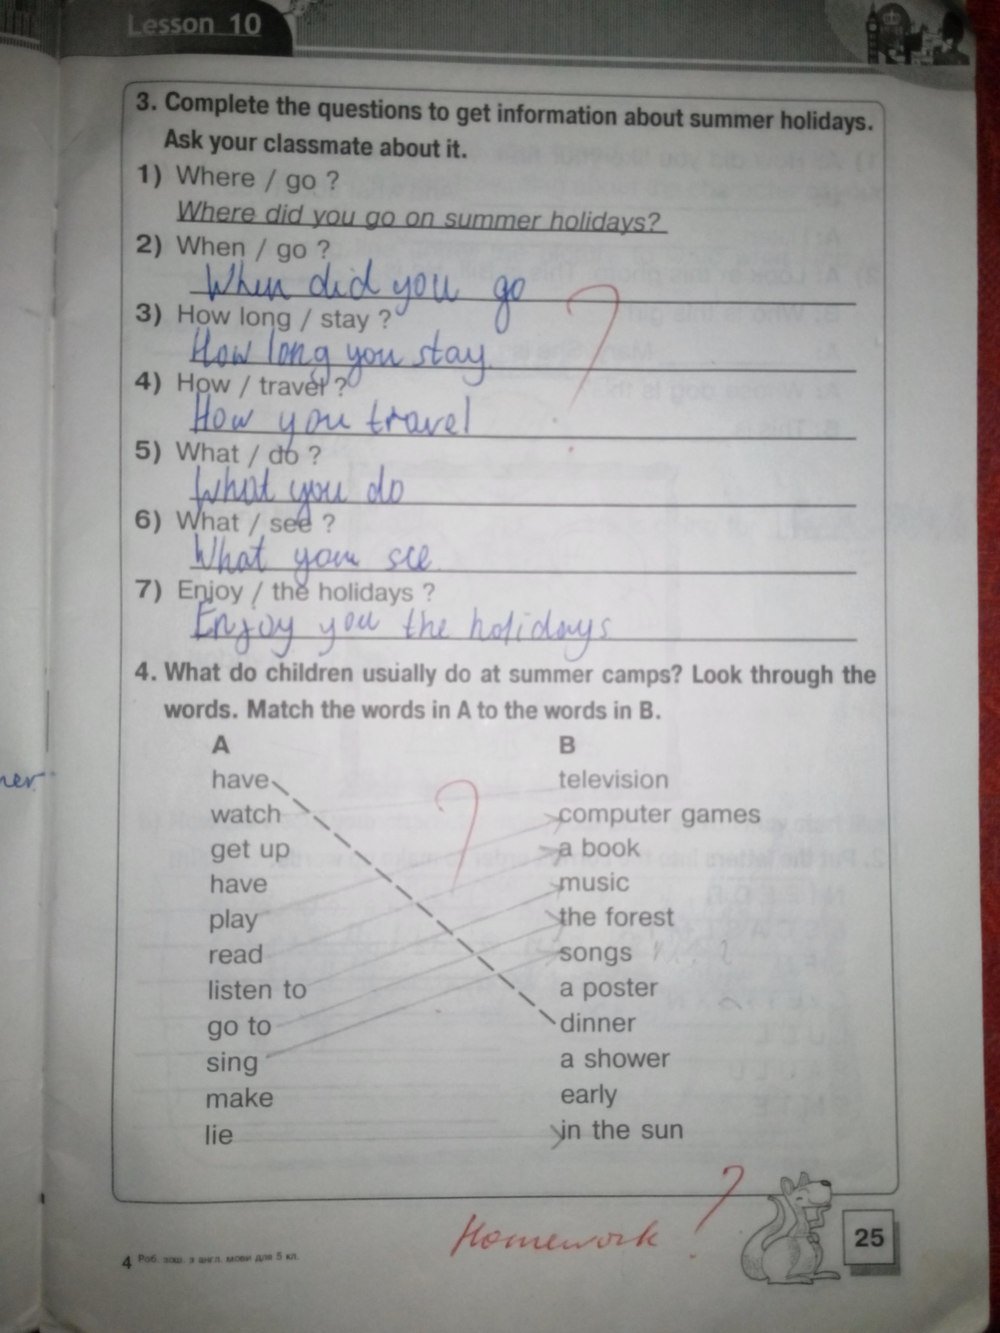 Lesson 10
3. Complete the questions to get information about summer holidays.
Ask your classmate about it.
1) Where / go ?
Where did you go on summer holidays?
2) When / go ?
When did you go
3) How long / stay ?
How long you stay.
4) How / travel ?
How you travel
5) What / do ?
What you do
6) What / see ?
What you see
7) Enjoy / the holidays ?
Enjoy you the holidays
?
4. What do children usually do at summer camps? Look through the
words. Match the words in A to the words in B.
A B
have television
watch computer games
get up a book
have music
play the forest
read songs
listen to a poster
go to dinner
sing a shower
make early
lie in the sun
?
Homework ?
25
4 Роб. зош. з англ. мови для 5 кл.